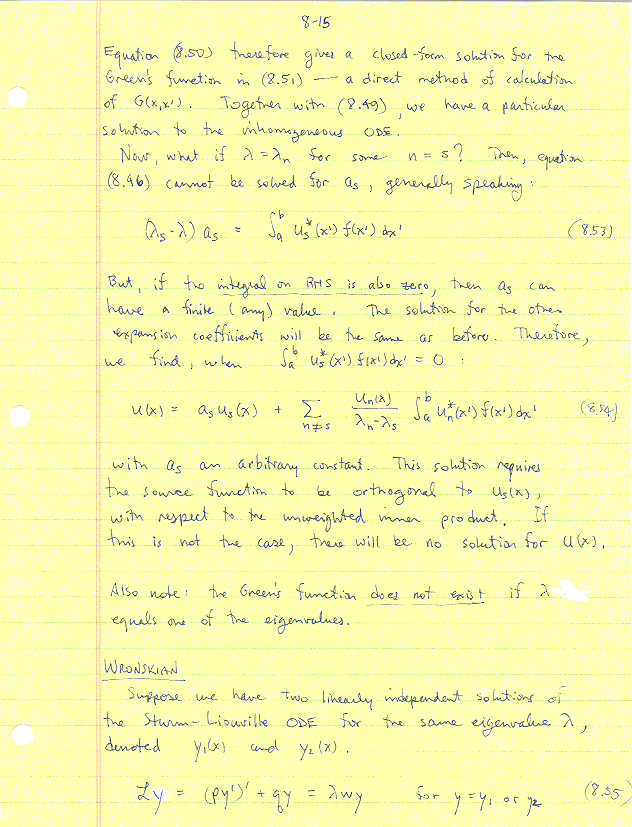 8-15
Equation (8.50) therefore gives a closed-form solution for the
Green's function in (8.51) — a direct method of calculation
of G(x,x'). Together with (8.49), we have a particular
solution to the inhomogeneous ODE.
Now, what if λ = λn for some n = s? Then, equation
(8.46) cannot be solved for as, generally speaking:
(λs - λ) as = ∫ab us*(x') f(x') dx' (8.53)
But, if the integral on RHS is also zero, then as can
have a finite (any) value. The solution for the other
expansion coefficients will be the same as before. Therefore,
we find, when ∫ab us*(x') f(x') dx' = 0 :
u(x) = as us(x) + Σn≠s un(x)/(λn-λs) ∫ab un*(x') f(x') dx' (8.54)
with as an arbitrary constant. This solution requires
the source function to be orthogonal to us(x),
with respect to the unweighted inner product. If
this is not the case, there will be no solution for u(x).
Also note: the Green's function does not exist if λ
equals one of the eigenvalues.
WRONSKIAN
Suppose we have two linearly independent solutions of
the Sturm-Liouville ODE for the same eigenvalue λ,
denoted y1(x) and y2(x).
Ly = (py')' + qy = λwy for y = y1 or y2 (8.55)